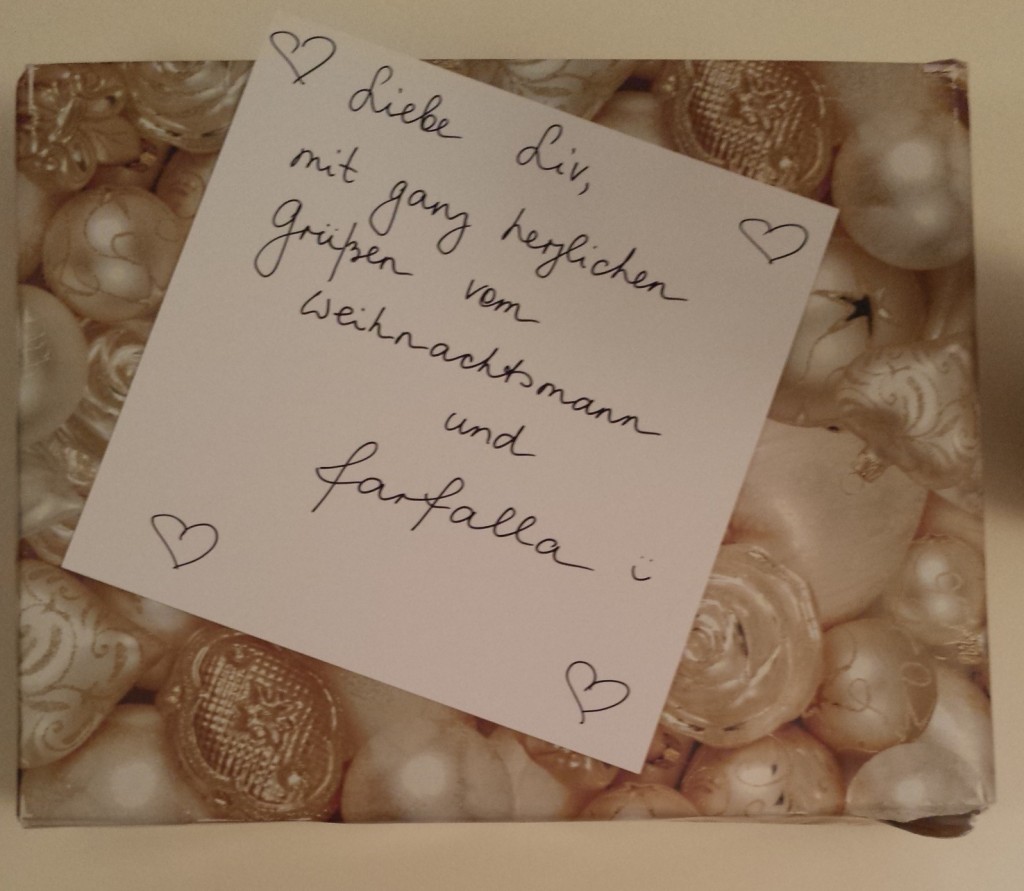 Liebe Liv,
mit ganz herzlichen
Grüßen vom
Weihnachtsmann
und
farfalla ü